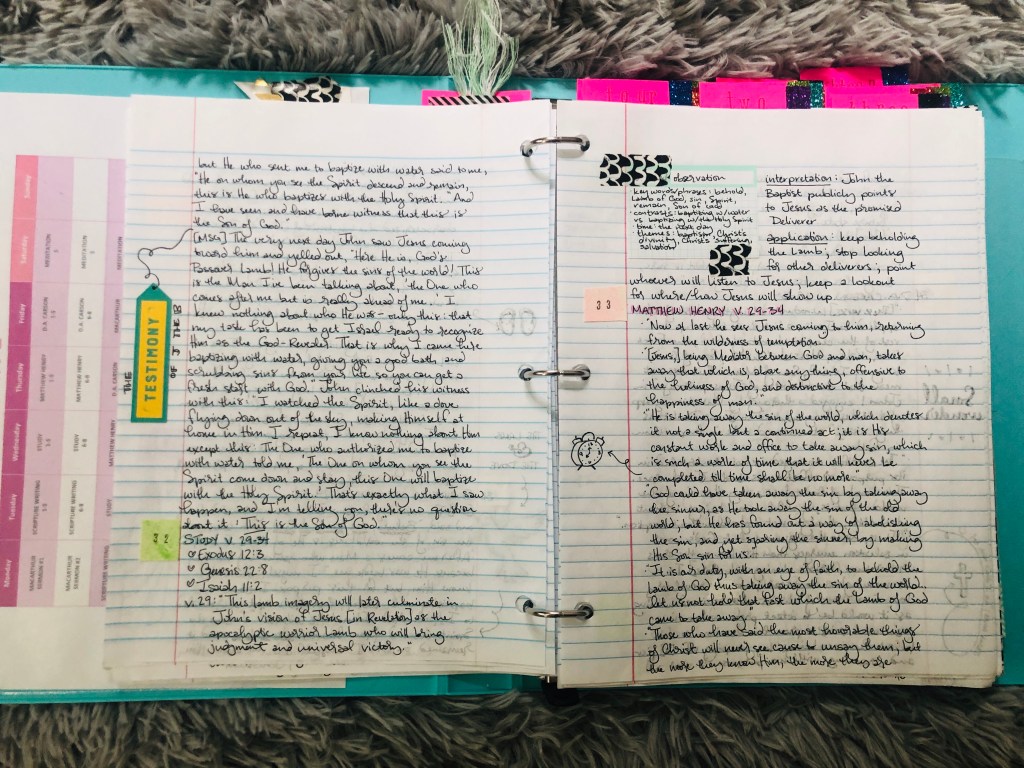 but He who sent me to baptize with water said to me,
"He on whom you see the Spirit descend and remain,
this is He who baptizes with the Holy Spirit." And
I have seen and have borne witness that this is
the Son of God."
[MSG] The very next day John saw Jesus coming
toward him and yelled out, "Here He is, God's
Passover Lamb! He forgives the sins of the world! This
is the Man I've been talking about, 'the One who
comes after me but is really ahead of me.' I
knew nothing about who He was - only this: that
my task has been to get Israel ready to recognize
Him as the God-Revealer. That is why I came here
baptizing with water, giving you a good bath, and
scrubbing sins from your life so you can get a
fresh start with God." John clinched his witness
with this: "I watched the Spirit, like a dove
flying down out of the sky, making Himself at
home in Him. I repeat, I know nothing about Him
except this: The One who authorized me to baptize
with water told me, 'The One on whom you see the
Spirit come down and stay, this One will baptize
with the Holy Spirit.' That's exactly what I saw
happen, and I'm telling you, there's no question
about it: This is the Son of God."
THE
TESTIMONY
OF J THE B
STUDY V. 29-34
Exodus 12:3
Genesis 22:8
Isaiah 11:2
v.29: "This lamb imagery will later culminate in
John's vision of Jesus [in Revelation] as the
apocalyptic warrior Lamb who will bring
judgment and universal victory."
observation
key words/phrases: behold,
Lamb of God, sin, Spirit,
remain, Son of God
contrasts: baptizing w/water
vs baptizing w/the Holy Spirit
time: the next day
themes: baptism, Christ's
divinity, Christ's suffering,
salvation
interpretation: John the
Baptist publicly points
to Jesus as the promised
Deliverer
application: keep beholding
the Lamb; stop looking
for other deliverers; point
whoever will listen to Jesus; keep a lookout
for where/how Jesus will show up
33
MATTHEW HENRY V. 29-34
"Now at last he sees Jesus coming to him, returning
from the wildness of temptation."
"[Jesus,] being Mediator between God and man, takes
away that which is, above anything, offensive to
the holiness of God, and destructive to the
happiness of man."
"He is taking away the sin of the world, which denotes
it not a single but a continued act; it is His
constant work and office to take away sin, which
is such a work of time that it will never be
completed till time shall be no more."
"God could have taken away the sin by taking away
the sinner, as He took away the sin of the old
world, but He has found out a way of abolishing
the sin, and yet sparing the sinner, by making
His Son sin for us."
"It is our duty, with an eye of faith, to behold the
Lamb of God thus taking away the sin of the world.
Let us not hold that fast which the Lamb of God
came to take away."
"Those who have said the most honorable things
of Christ will never see cause to unsay them; but
the more they know Him, the more they are
Sunday
Saturday
MEDITATION
MEDITATION
MEDITATION
Friday
D.A. CARSON
D.A. CARSON
MACARTHUR
Thursday
MATTHEW HENRY
MATTHEW HENRY
D.A. CARSON
Wednesday
STUDY
STUDY
MATTHEW HENRY
Tuesday
SCRIPTURE WRITING
SCRIPTURE WRITING
STUDY
Monday
MACARTHUR
MACARTHUR
SCRIPTURE WRITING